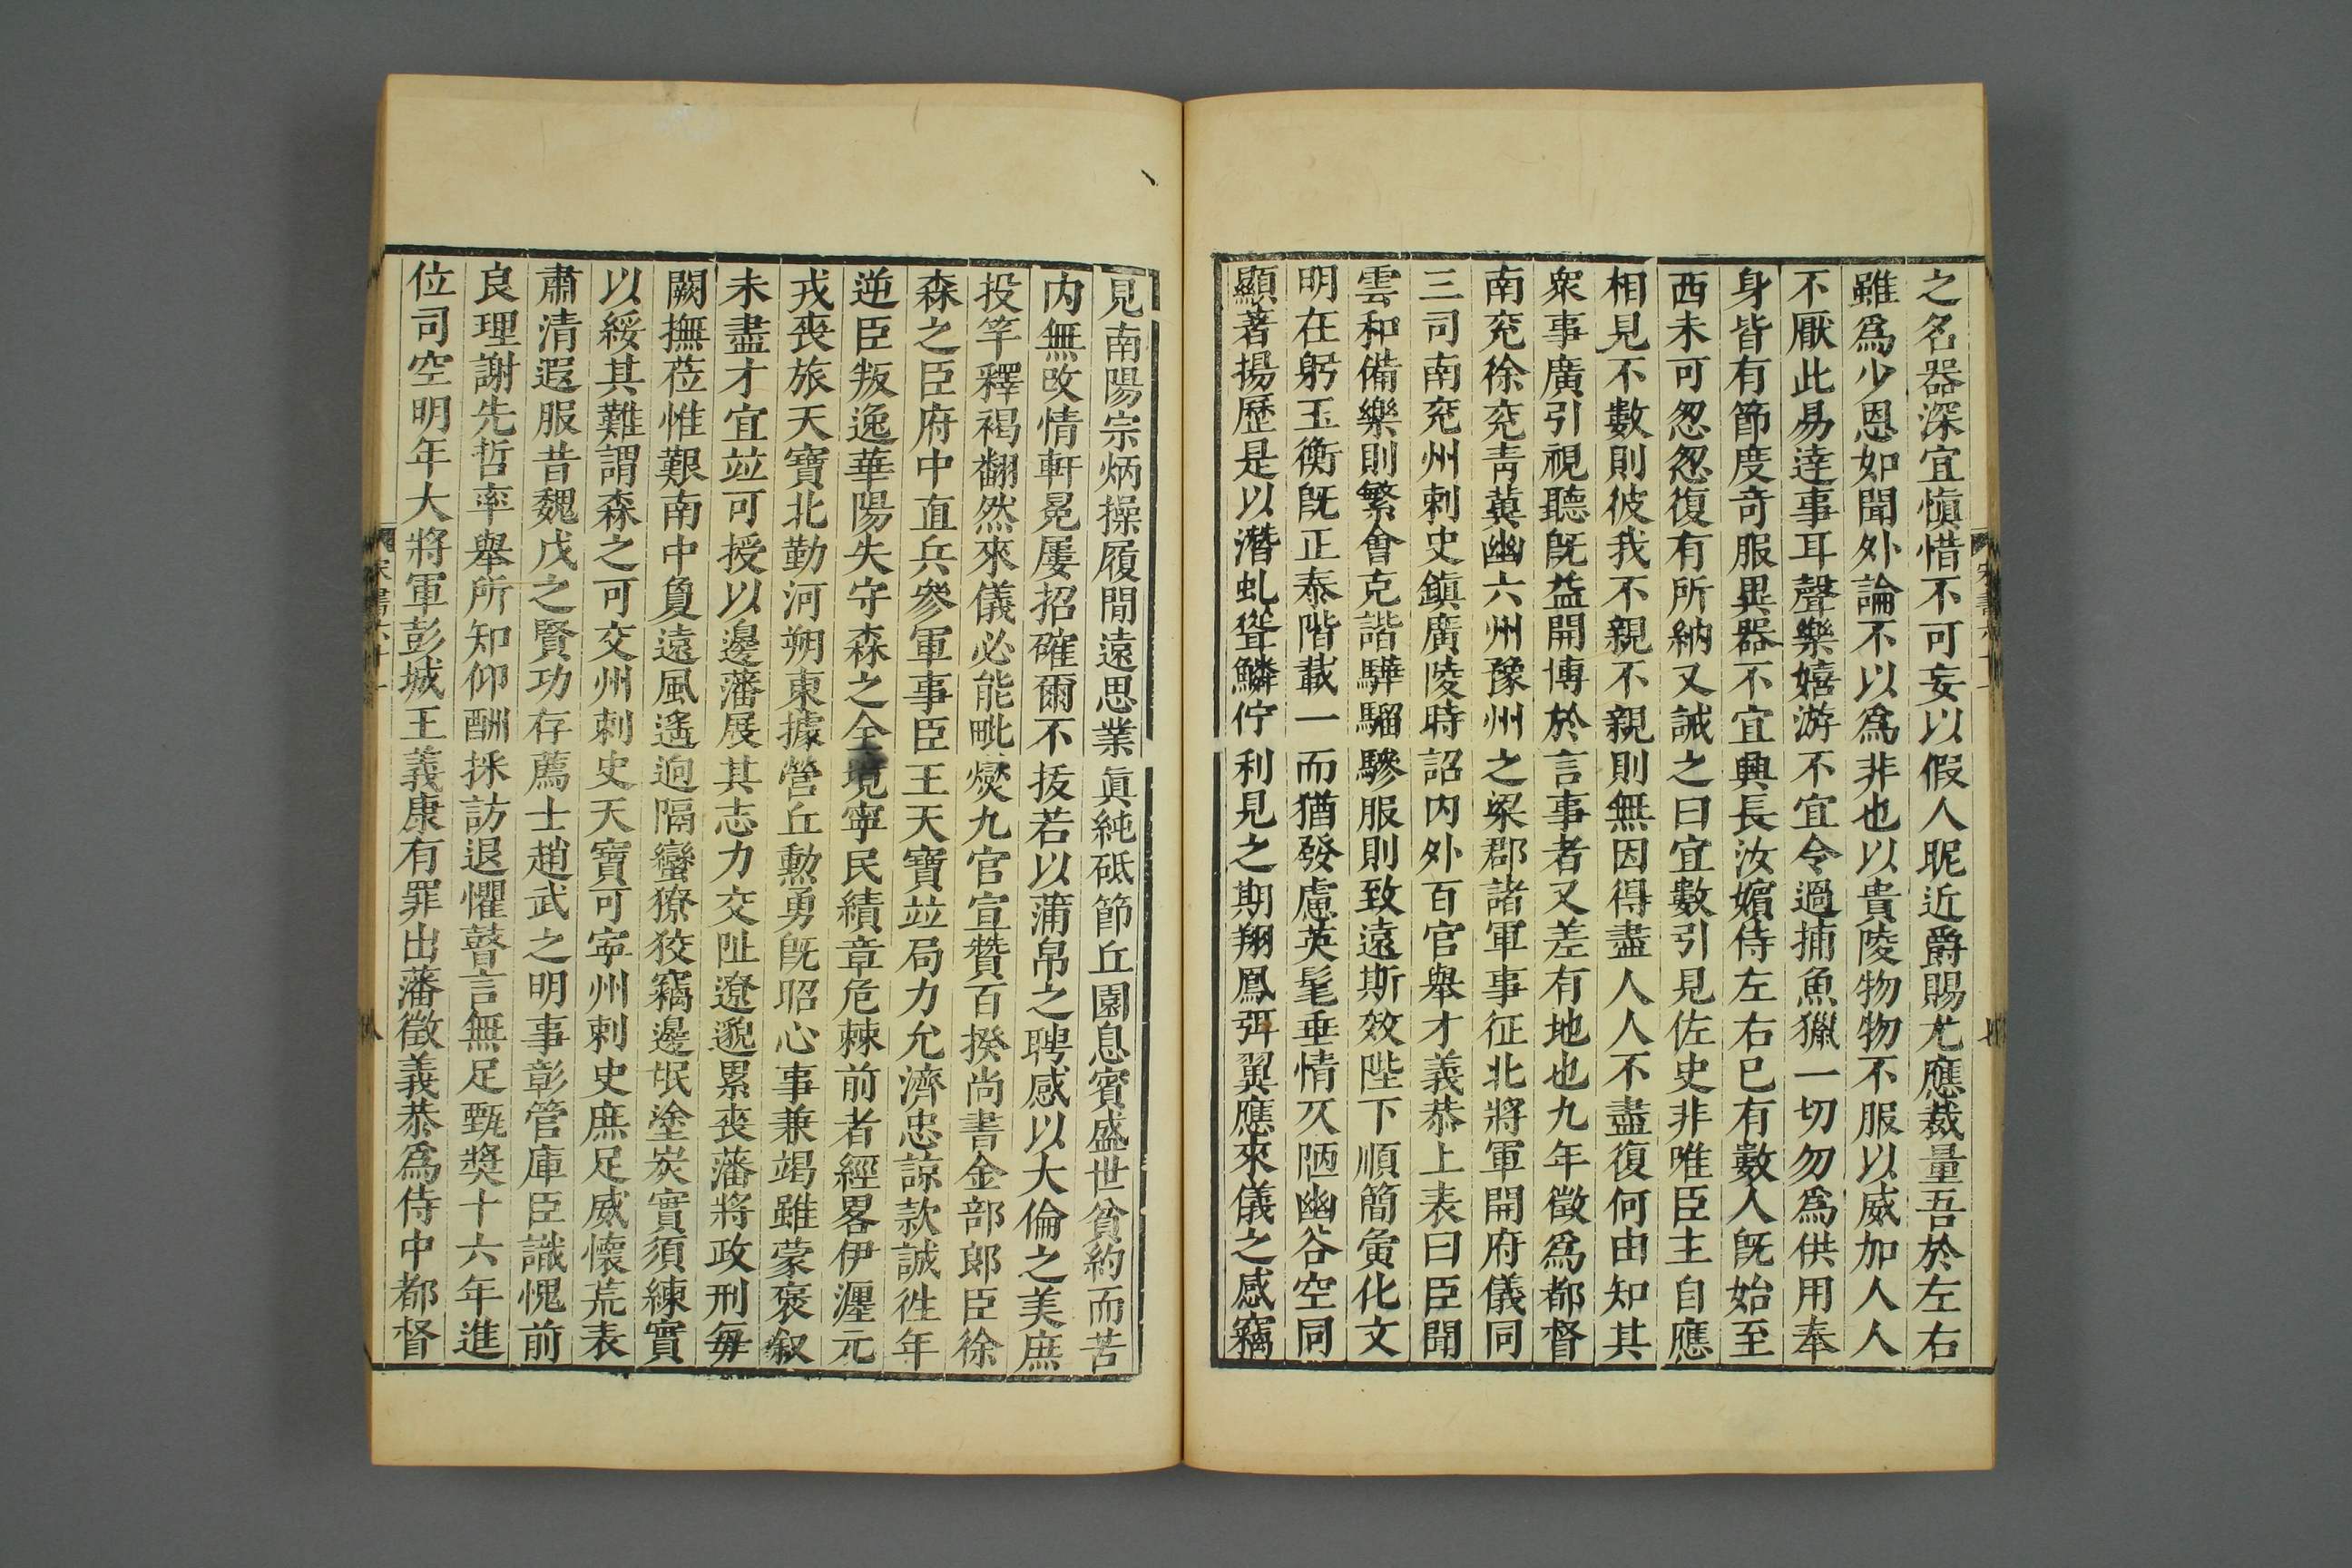 之名器深宜愼惜不可妄以假人昵近爵賜尤應裁量吾於左右
雖爲少恩如聞外論不以爲非也以貴陵物物不服以威加人人
不厭此易達事耳聲樂嬉游不宜令過捕魚獵一切勿爲供用奉
身皆有節度奇服異器不宜興長汝嬪侍左右已有數人旣始至
西未可忽忽復有所納又誡之曰宜數引見佐史非唯臣主自應
相見不數則彼我不親不親則無因得盡人人不盡復何由知其
衆事廣引視聽旣益開博於言事者又差有地也九年徵爲都督
南兗徐兗靑冀幽六州豫州之梁郡諸軍事征北將軍開府儀同
三司南兗州刺史鎭廣陵時詔內外百官舉才義恭上表曰臣聞
雲和備樂則繁會克諧驊騮驂服則致遠斯效陛下順簡夤化文
明在躬玉衡旣正泰階載一而猶發慮英髦垂情仄陋幽谷空同
顯著揚歷是以潛虬聳鱗佇利見之期翔鳳弭翼應來儀之感竊
見南陽宗炳操履閒遠思業眞純砥節丘園息賓盛世貧約而苦
内無改情軒冕屢招確爾不拔若以蒲帛之聘感以大倫之美庶
投竿釋褐翻然來儀必能毗燮九官宣贊百揆尚書金部郎臣徐
森之臣府中直兵參軍事臣王天寶竝局力允濟忠諒款誠往年
逆臣叛逸華陽失守森之全境寧民績章危棘前者經畧伊瀍元
戎喪旅天寶北勤河朔東據營丘勳勇旣昭心事兼竭雖蒙褒叙
未盡才宜竝可授以邊藩展其志力交阯遼邈累喪藩將政刑每
闕撫莅惟艱南中敻遠風遙迥隔蠻獠狡竊邊氓塗炭實須練實
以綏其難謂森之可交州刺史天寶可寧州刺史庶足威懷荒表
肅清遐服昔魏戊之賢功存薦士趙武之明事彰管庫臣識愧前
良理謝先哲率舉所知仰酬採訪退懼瞽言無足甄奬十六年進
位司空明年大將軍彭城王義康有罪出藩徵義恭爲侍中都督
宋書六十一
八